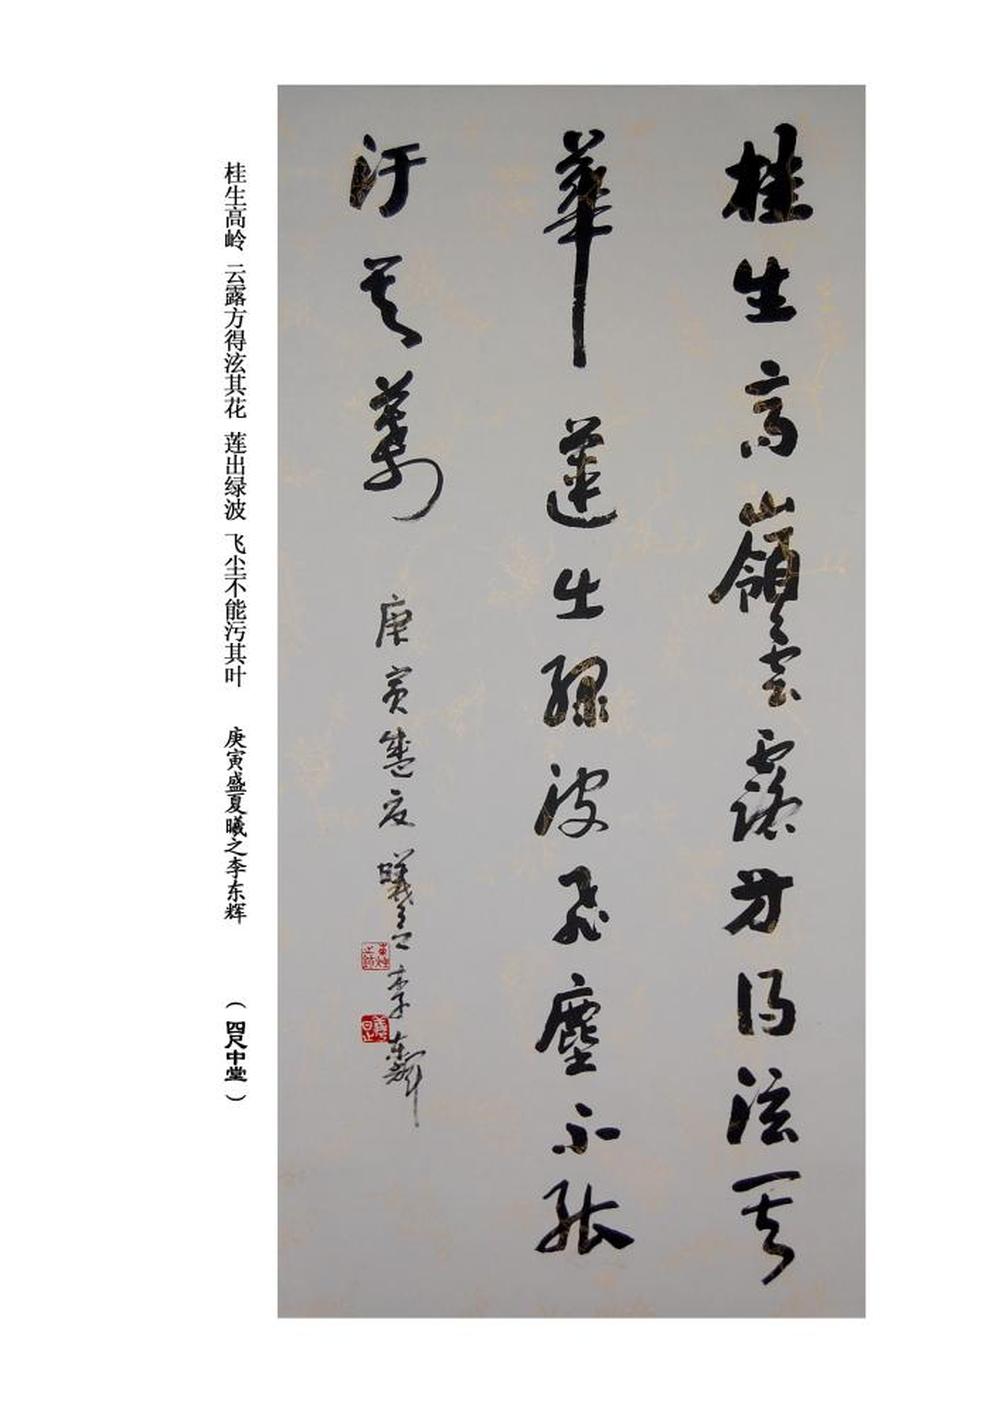 桂生高嶺雲露方得泫其
華蓮出綠波飛塵不能
汙其葉 庚寅盛夏曦之李東輝
桂生高岭 云露方得泫其花 莲出绿波 飞尘不能污其叶 庚寅盛夏曦之李东辉 （四尺中堂）